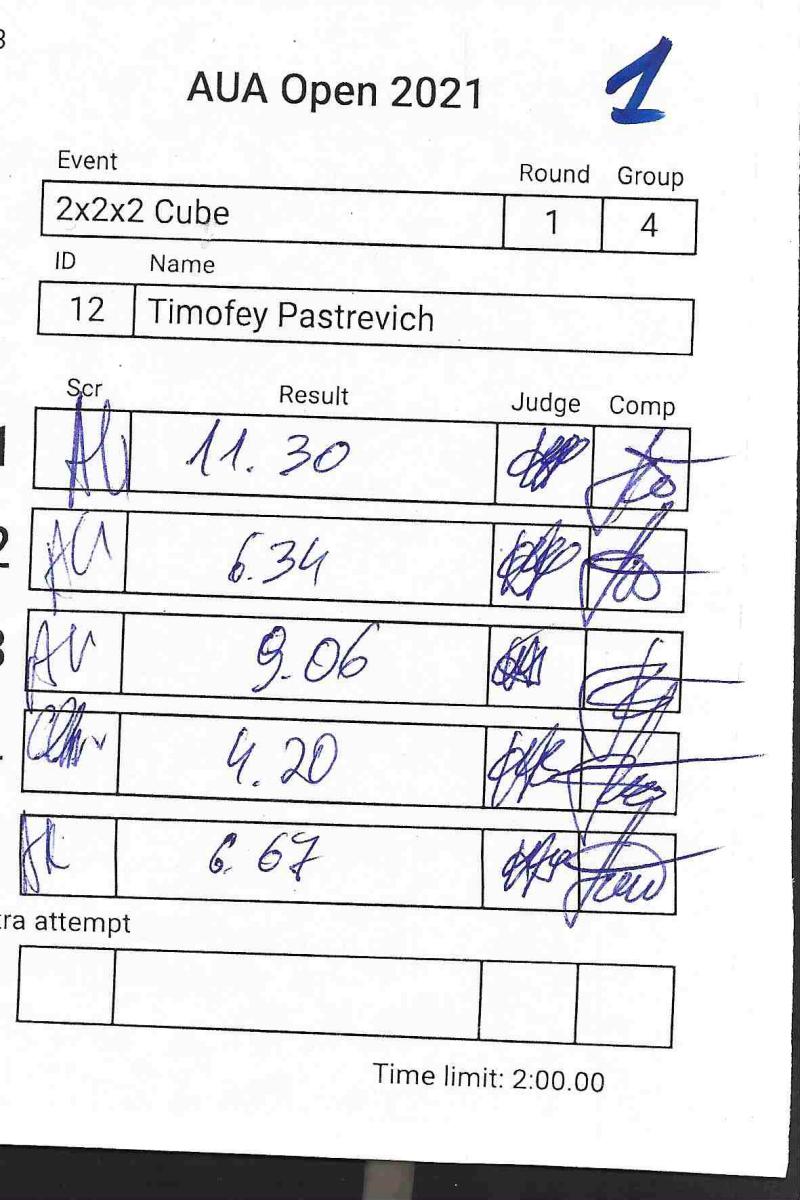 AUA Open 2021 1
Event Round Group
2x2x2 Cube 1 4
ID Name
12 Timofey Pastrevich
Scr Result Judge Comp
11.30
2 6.34
3 9.06
4.20
6.67
tra attempt
Time limit: 2:00.00